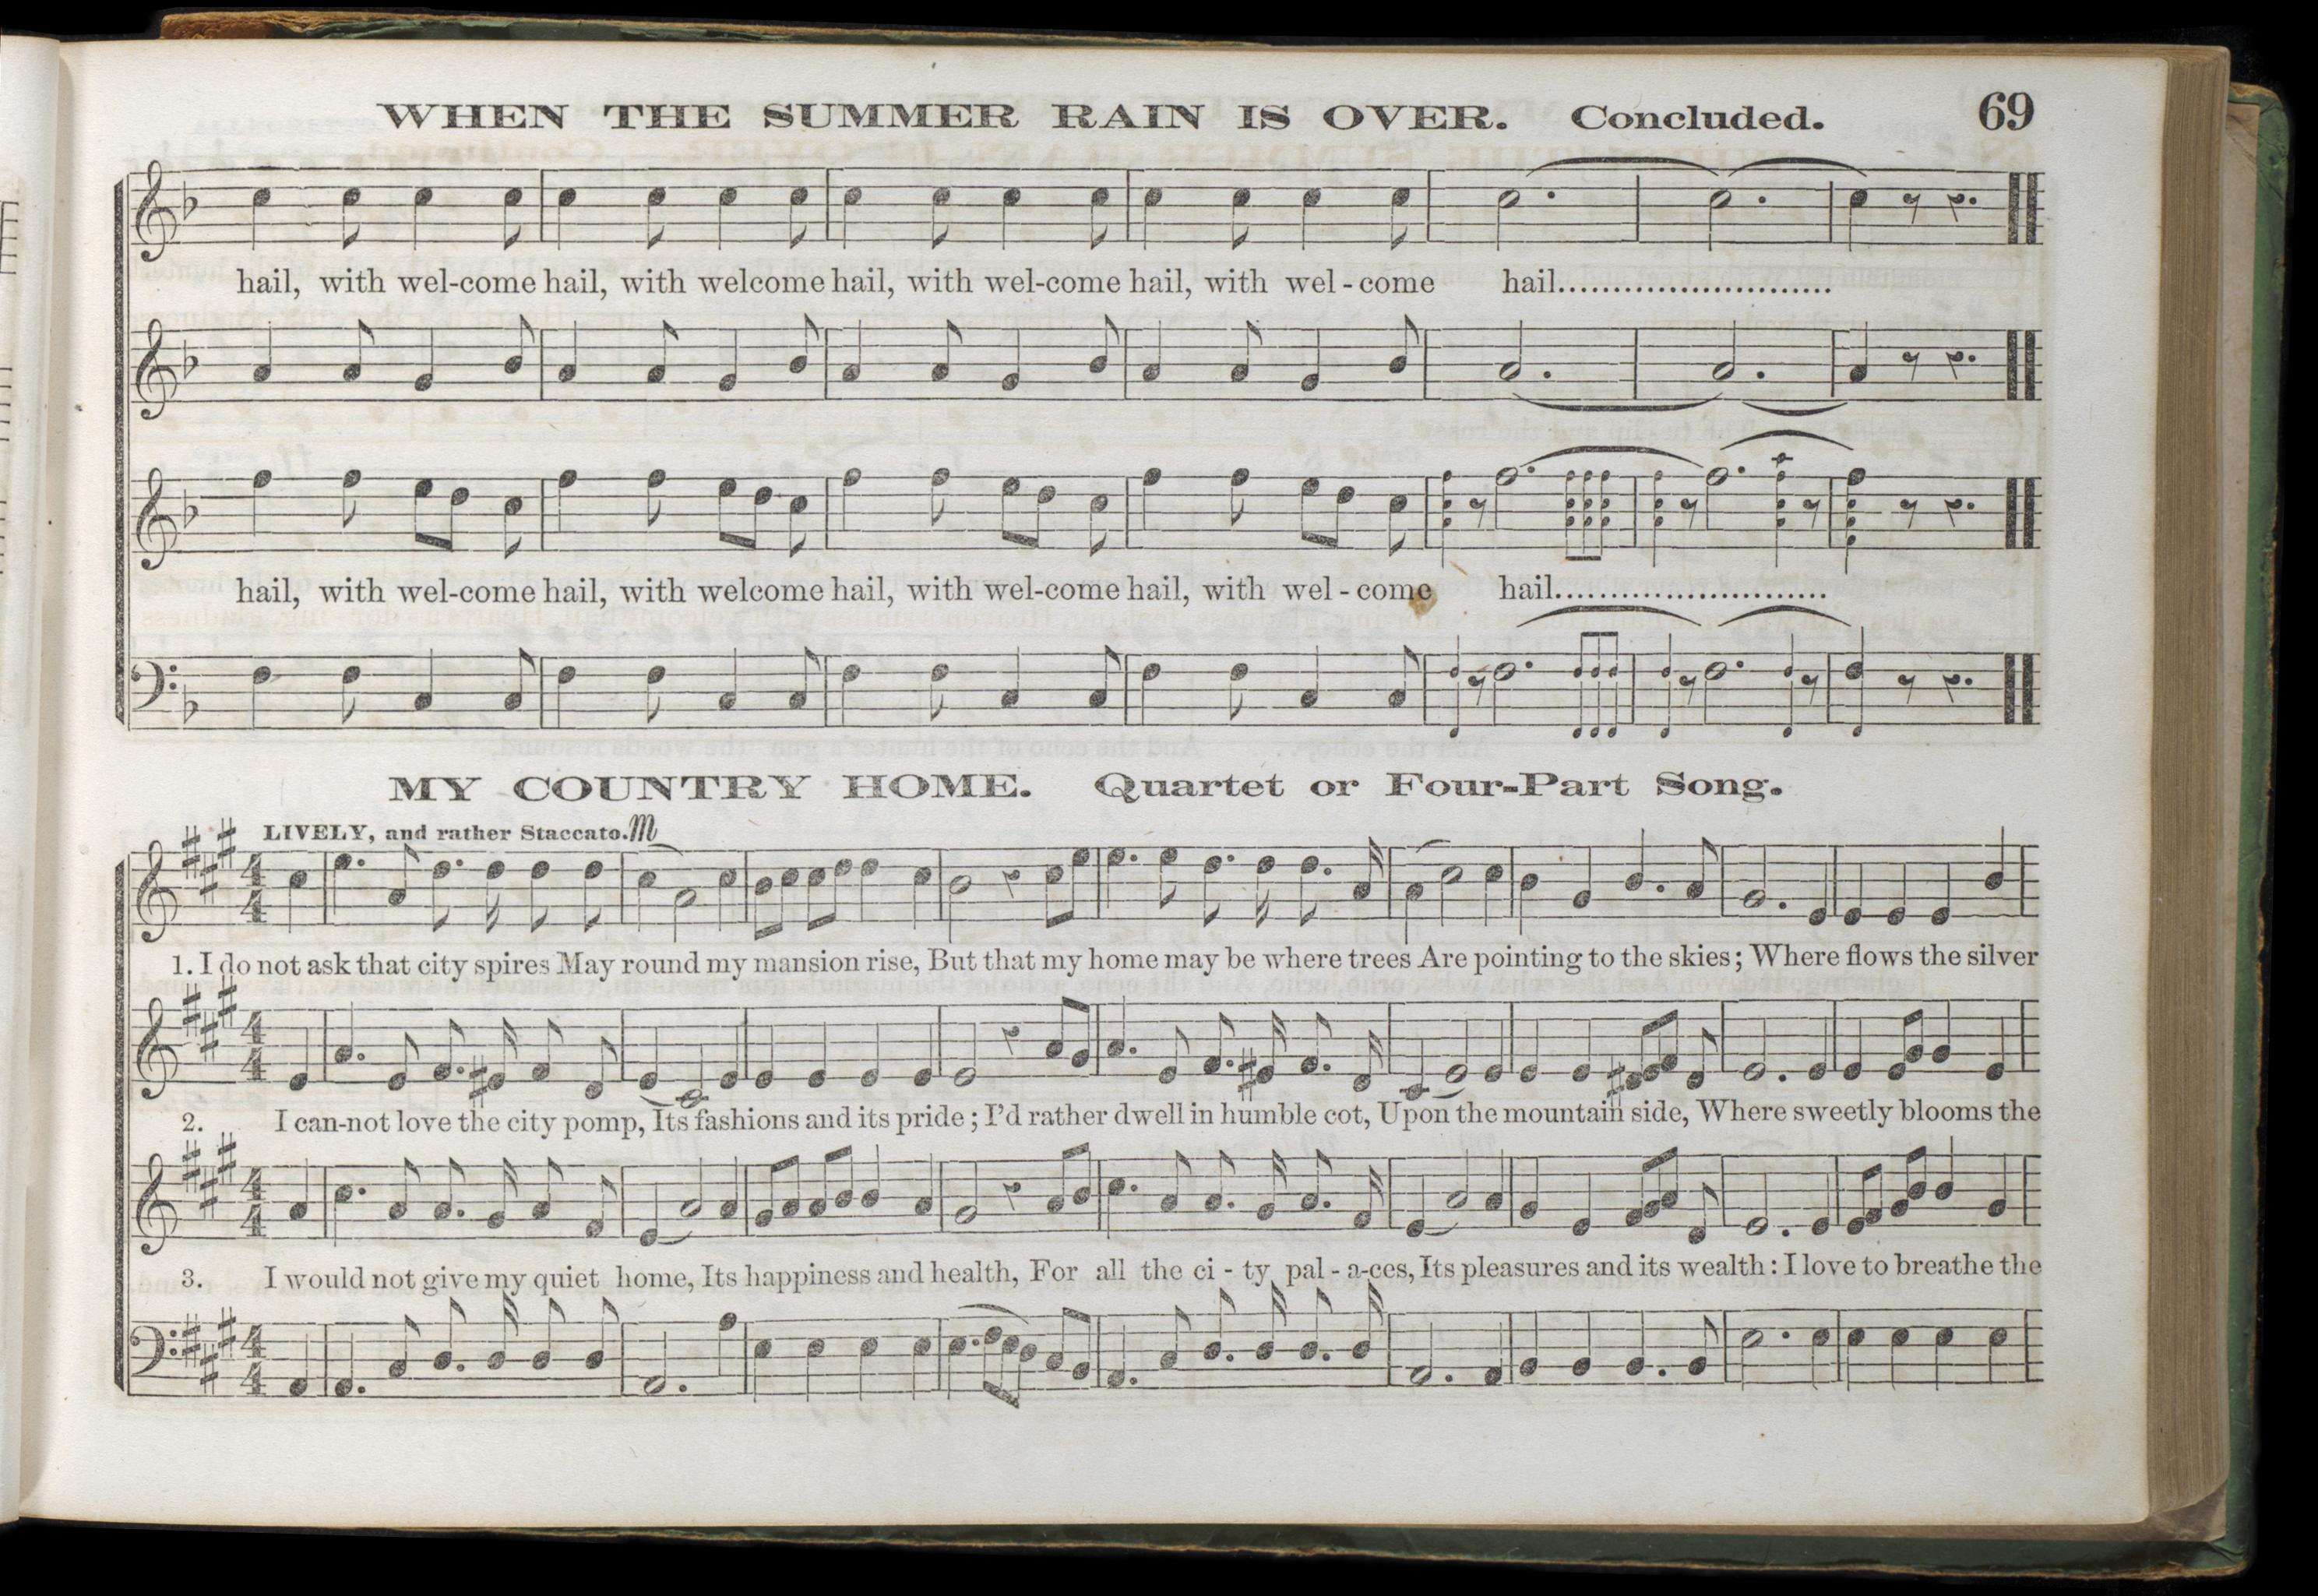 WHEN THE SUMMER RAIN IS OVER. Concluded. 69
hail, with wel-come hail, with welcome hail, with wel-come hail, with wel - come hail..........................
hail, with wel-come hail, with welcome hail, with wel-come hail, with wel - come hail..........................
MY COUNTRY HOME. Quartet or Four-Part Song.
LIVELY, and rather Staccato. m
4
4
1. I do not ask that city spires May round my mansion rise, But that my home may be where trees Are pointing to the skies; Where flows the silver
4
4
2. I can-not love the city pomp, Its fashions and its pride; I'd rather dwell in humble cot, Upon the mountain side, Where sweetly blooms the
4
4
3. I would not give my quiet home, Its happiness and health, For all the ci - ty pal - a-ces, Its pleasures and its wealth: I love to breathe the
4
4